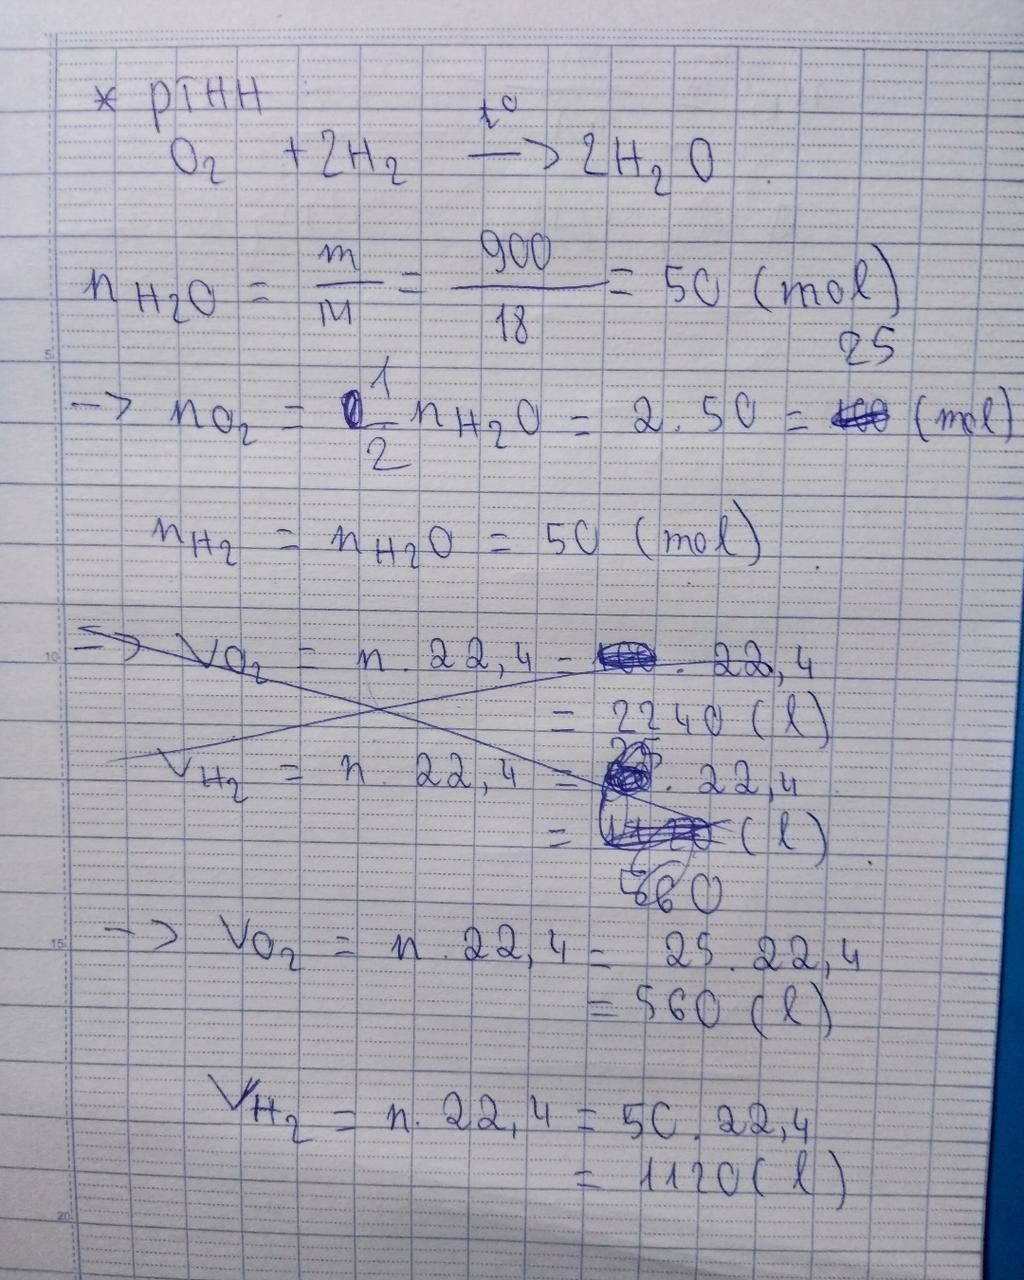 * PTHH
t°
O₂ + 2H₂ → 2H₂O
n H₂O = m/M = 900/18 = 50 (mol)
25
→ nO₂ = 1/2 nH₂O = 2.50 = (mol)
nH₂ = nH₂O = 50 (mol)
=> VO₂ = n. 22,4 = . 22,4
= 2240 (l)
25
VH₂ = n. 22,4 = . 22,4
= (l)
560
→ VO₂ = n. 22,4 = 25. 22,4
= 560 (l)
VH₂ = n. 22,4 = 50. 22,4
= 1120 (l)
5
10
15
20